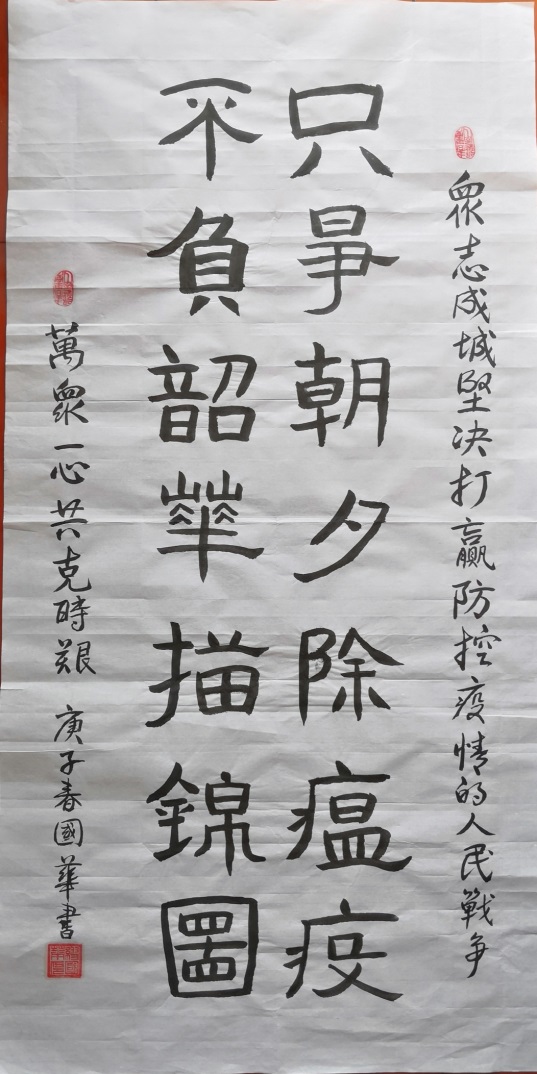 眾志成城堅决打贏防控疫情的人民戰争
只爭朝夕除瘟疫
不負韶華描錦圖
萬眾一心共克時艱 庚子春國華書